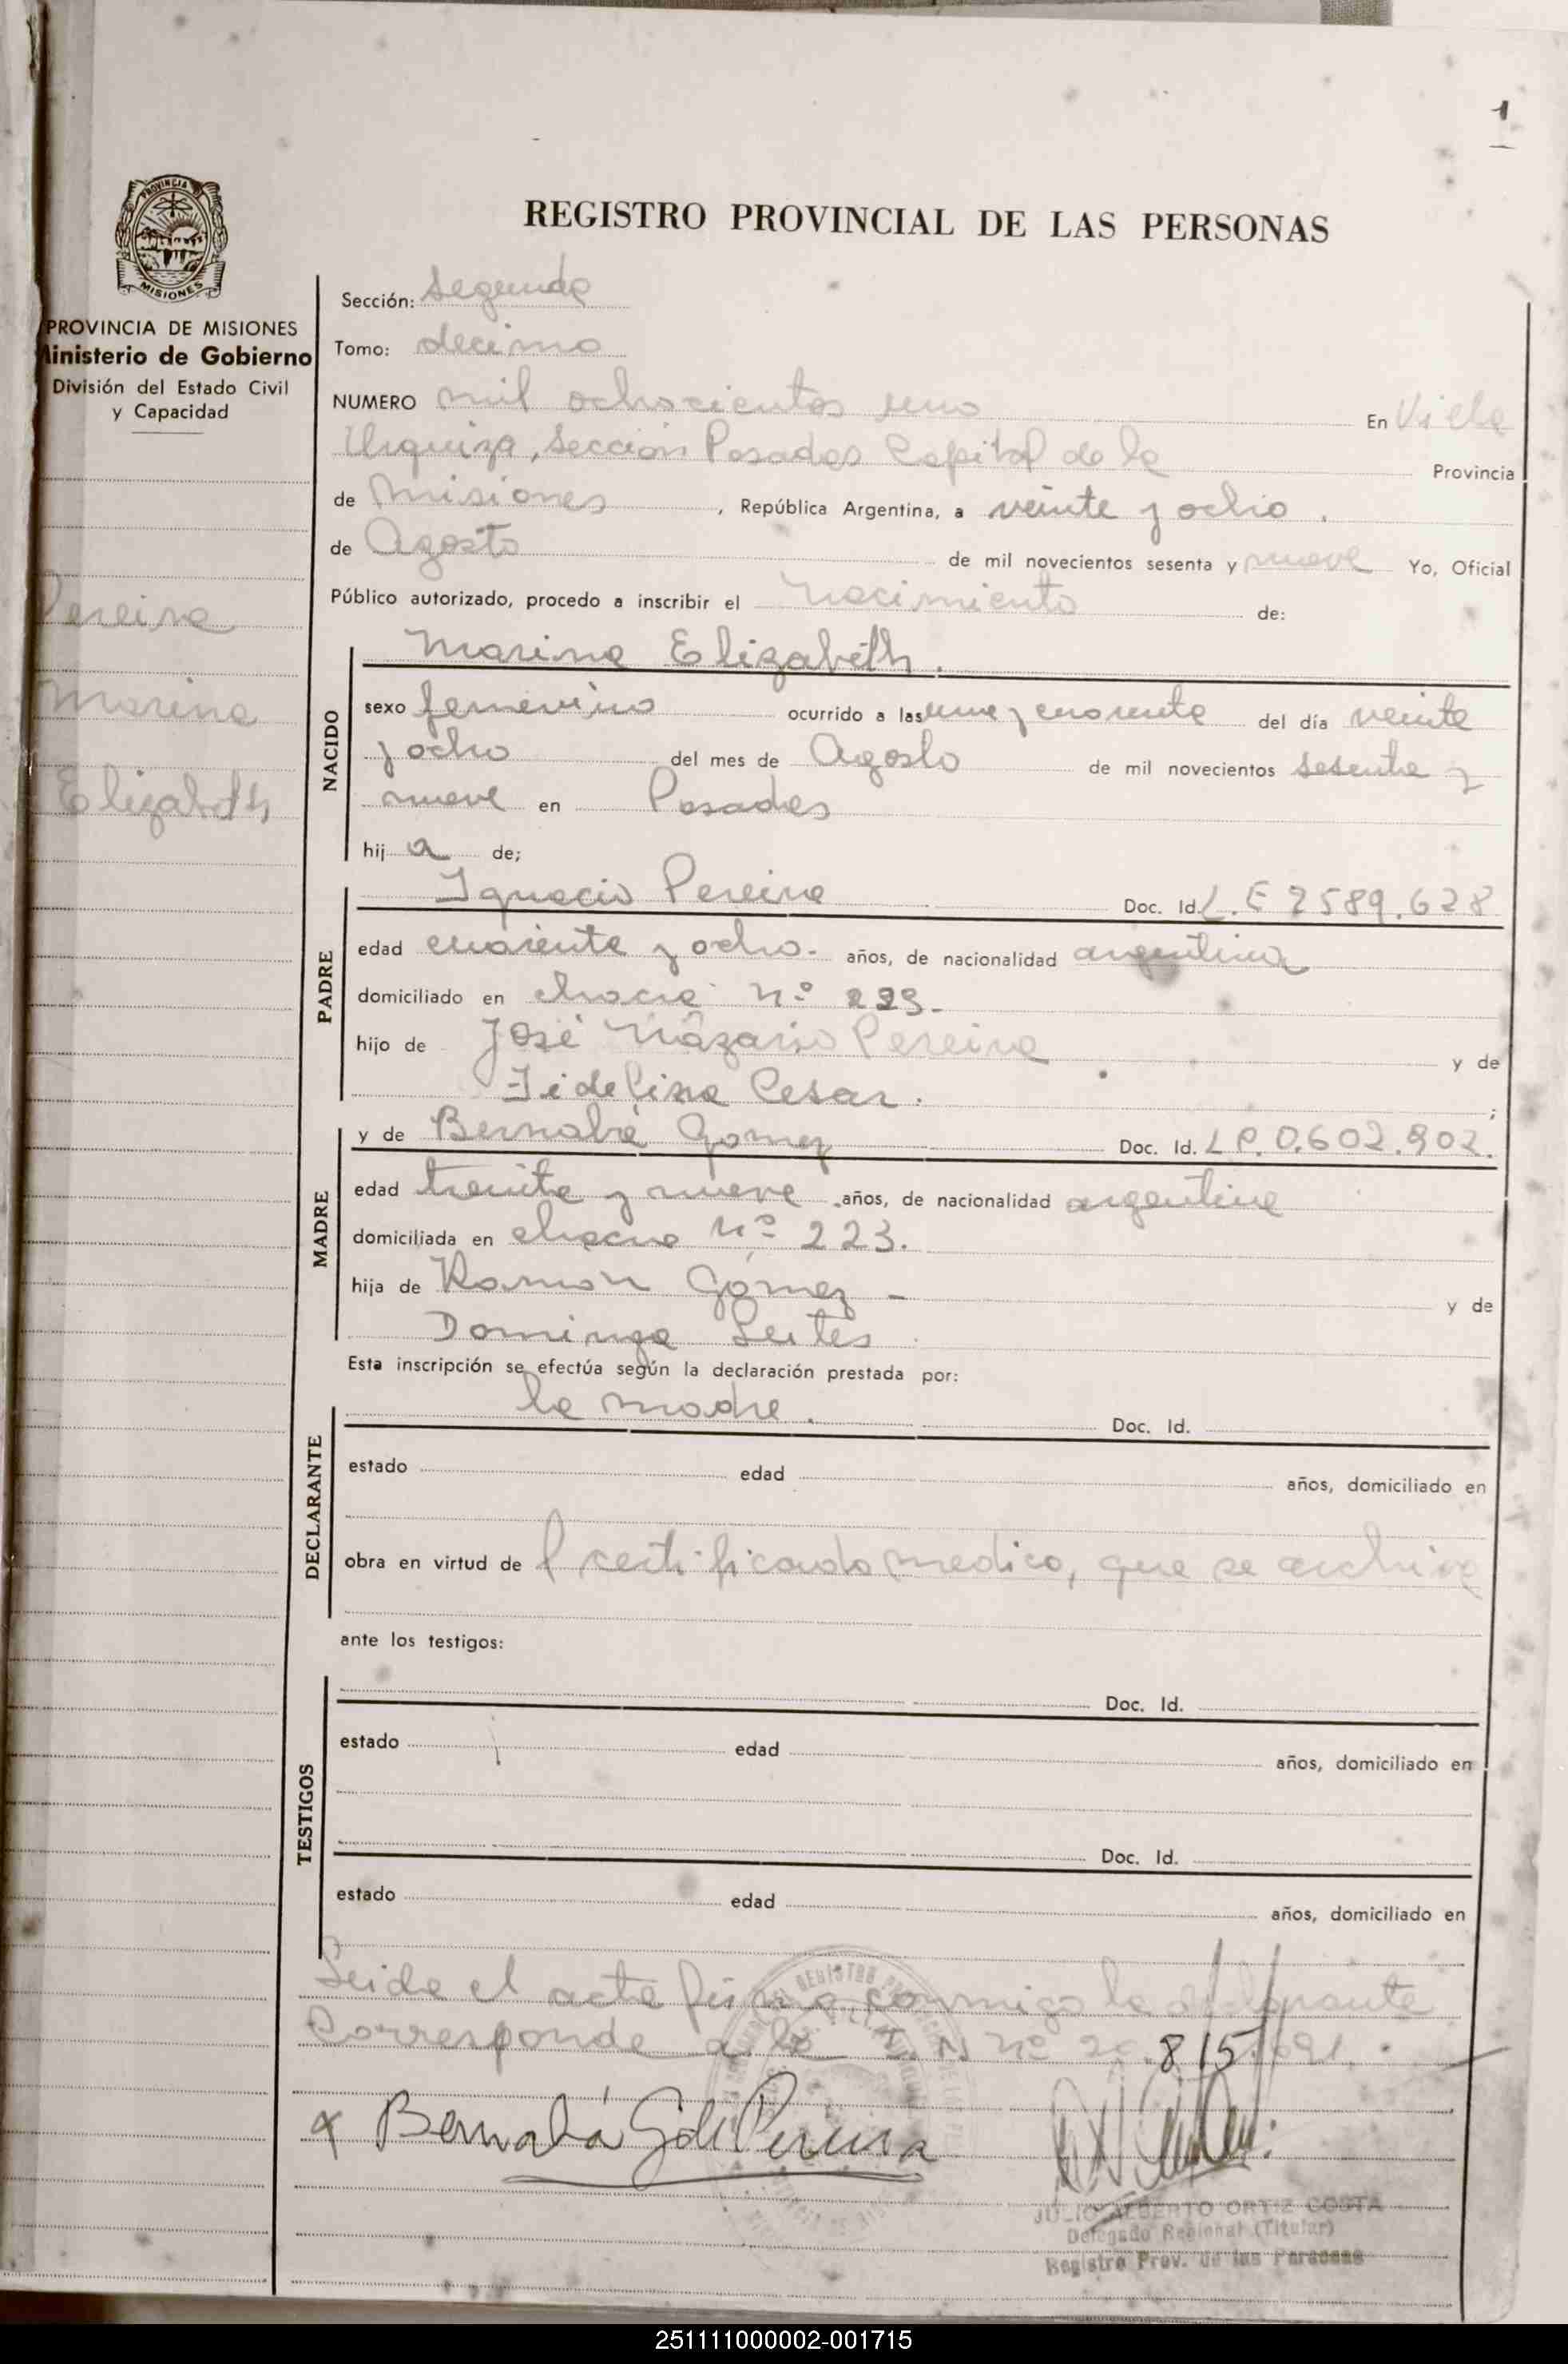 1
PROVINCIA
MISIONES
REGISTRO PROVINCIAL DE LAS PERSONAS
PROVINCIA DE MISIONES
Ministerio de Gobierno
División del Estado Civil
y Capacidad
Pereira
Marina
Elizabeth
Sección: segunda
Tomo: decimo
NUMERO mil ochocientos uno En Villa
Urquiza, Sección Posadas Capital de la Provincia
de Misiones, República Argentina, a veinte y ocho.
de Agosto de mil novecientos sesenta y nueve Yo, Oficial
Público autorizado, procedo a inscribir el nacimiento de:
Marina Elizabeth.
NACIDO
sexo femenino ocurrido a las una y cuarenta del día veinte
y ocho del mes de Agosto de mil novecientos sesenta y
nueve en Posadas
hij a de;
PADRE
Ignacio Pereira Doc. Id. L.E 2589.628
edad cuarenta y ocho. años, de nacionalidad argentina
domiciliado en chacra nº 223.
hijo de José Názario Pereira y de
Fidelina Cesar. ;
MADRE
y de Bernabé Gomez Doc. Id. L P. 0.602.902.
edad treinta y nueve años, de nacionalidad argentina
domiciliada en chacra nº 223.
hija de Ramón Gómez - y de
Dominga Leites
Esta inscripción se efectúa según la declaración prestada por:
DECLARANTE
la madre. Doc. Id.
estado edad años, domiciliado en
obra en virtud de certificado medico, que se archiva
ante los testigos:
TESTIGOS
Doc. Id.
estado edad años, domiciliado en
Doc. Id.
estado edad años, domiciliado en
Leida el acta firma conmigo la declarante
Corresponde a la I. N nº 20.815.691.
Bernabá G. de Pereira
JULIO ALBERTO ORTIZ COSTA
Delegado Regional (Titular)
Registro Prov. de las Personas
251111000002-001715